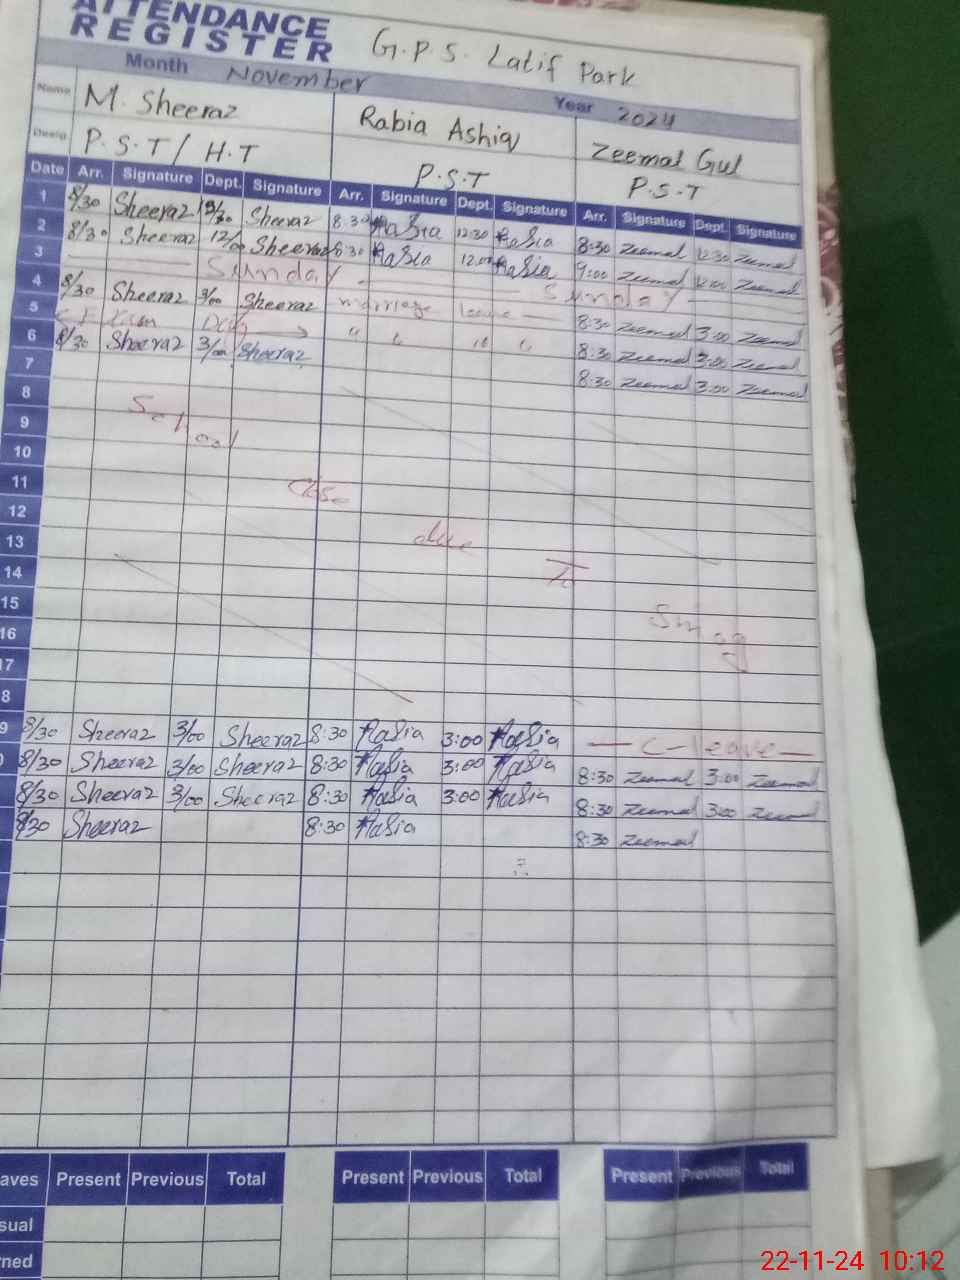 ATTENDANCE
REGISTER G.P.S. Latif Park
Month November Year 2024
Name M. Sheeraz Rabia Ashiq Zeemal Gul
Desig. P.S.T / H.T P.S.T P.S.T
Date Arr. Signature Dept. Signature Arr. Signature Dept. Signature Arr. Signature Dept. Signature
1 8/30 Sheeraz 12/30 Sheeraz 8:30 Rabia 12:30 Rabia 8:30 Zeemal 12:30 Zeemal
2 8/30 Sheeraz 12/00 Sheeraz 8:30 Rabia 12:00 Rabia 9:00 Zeemal 12:00 Zeemal
3 Sunday Sunday
4 8/30 Sheeraz 3/00 Sheeraz marriage leave 8:30 Zeemal 3:00 Zeemal
5 Day " " " " 8:30 Zeemal 3:00 Zeemal
6 8/30 Sheeraz 3/00 Sheeraz 8:30 Zeemal 3:00 Zeemal
7
8
9 School
10
11 Close
12
13 due
14 To
15
16 Smog
17
8
9 8/30 Sheeraz 3/00 Sheeraz 8:30 Rabia 3:00 Rabia C-leave
8/30 Sheeraz 3/00 Sheeraz 8:30 Rabia 3:00 Rabia 8:30 Zeemal 3:00 Zeemal
8/30 Sheeraz 3/00 Sheeraz 8:30 Rabia 3:00 Rabia 8:30 Zeemal 3:00 Zeemal
8/30 Sheeraz 8:30 Rabia 8:30 Zeemal
aves Present Previous Total Present Previous Total Present Previous Total
sual
ned
22-11-24 10:12